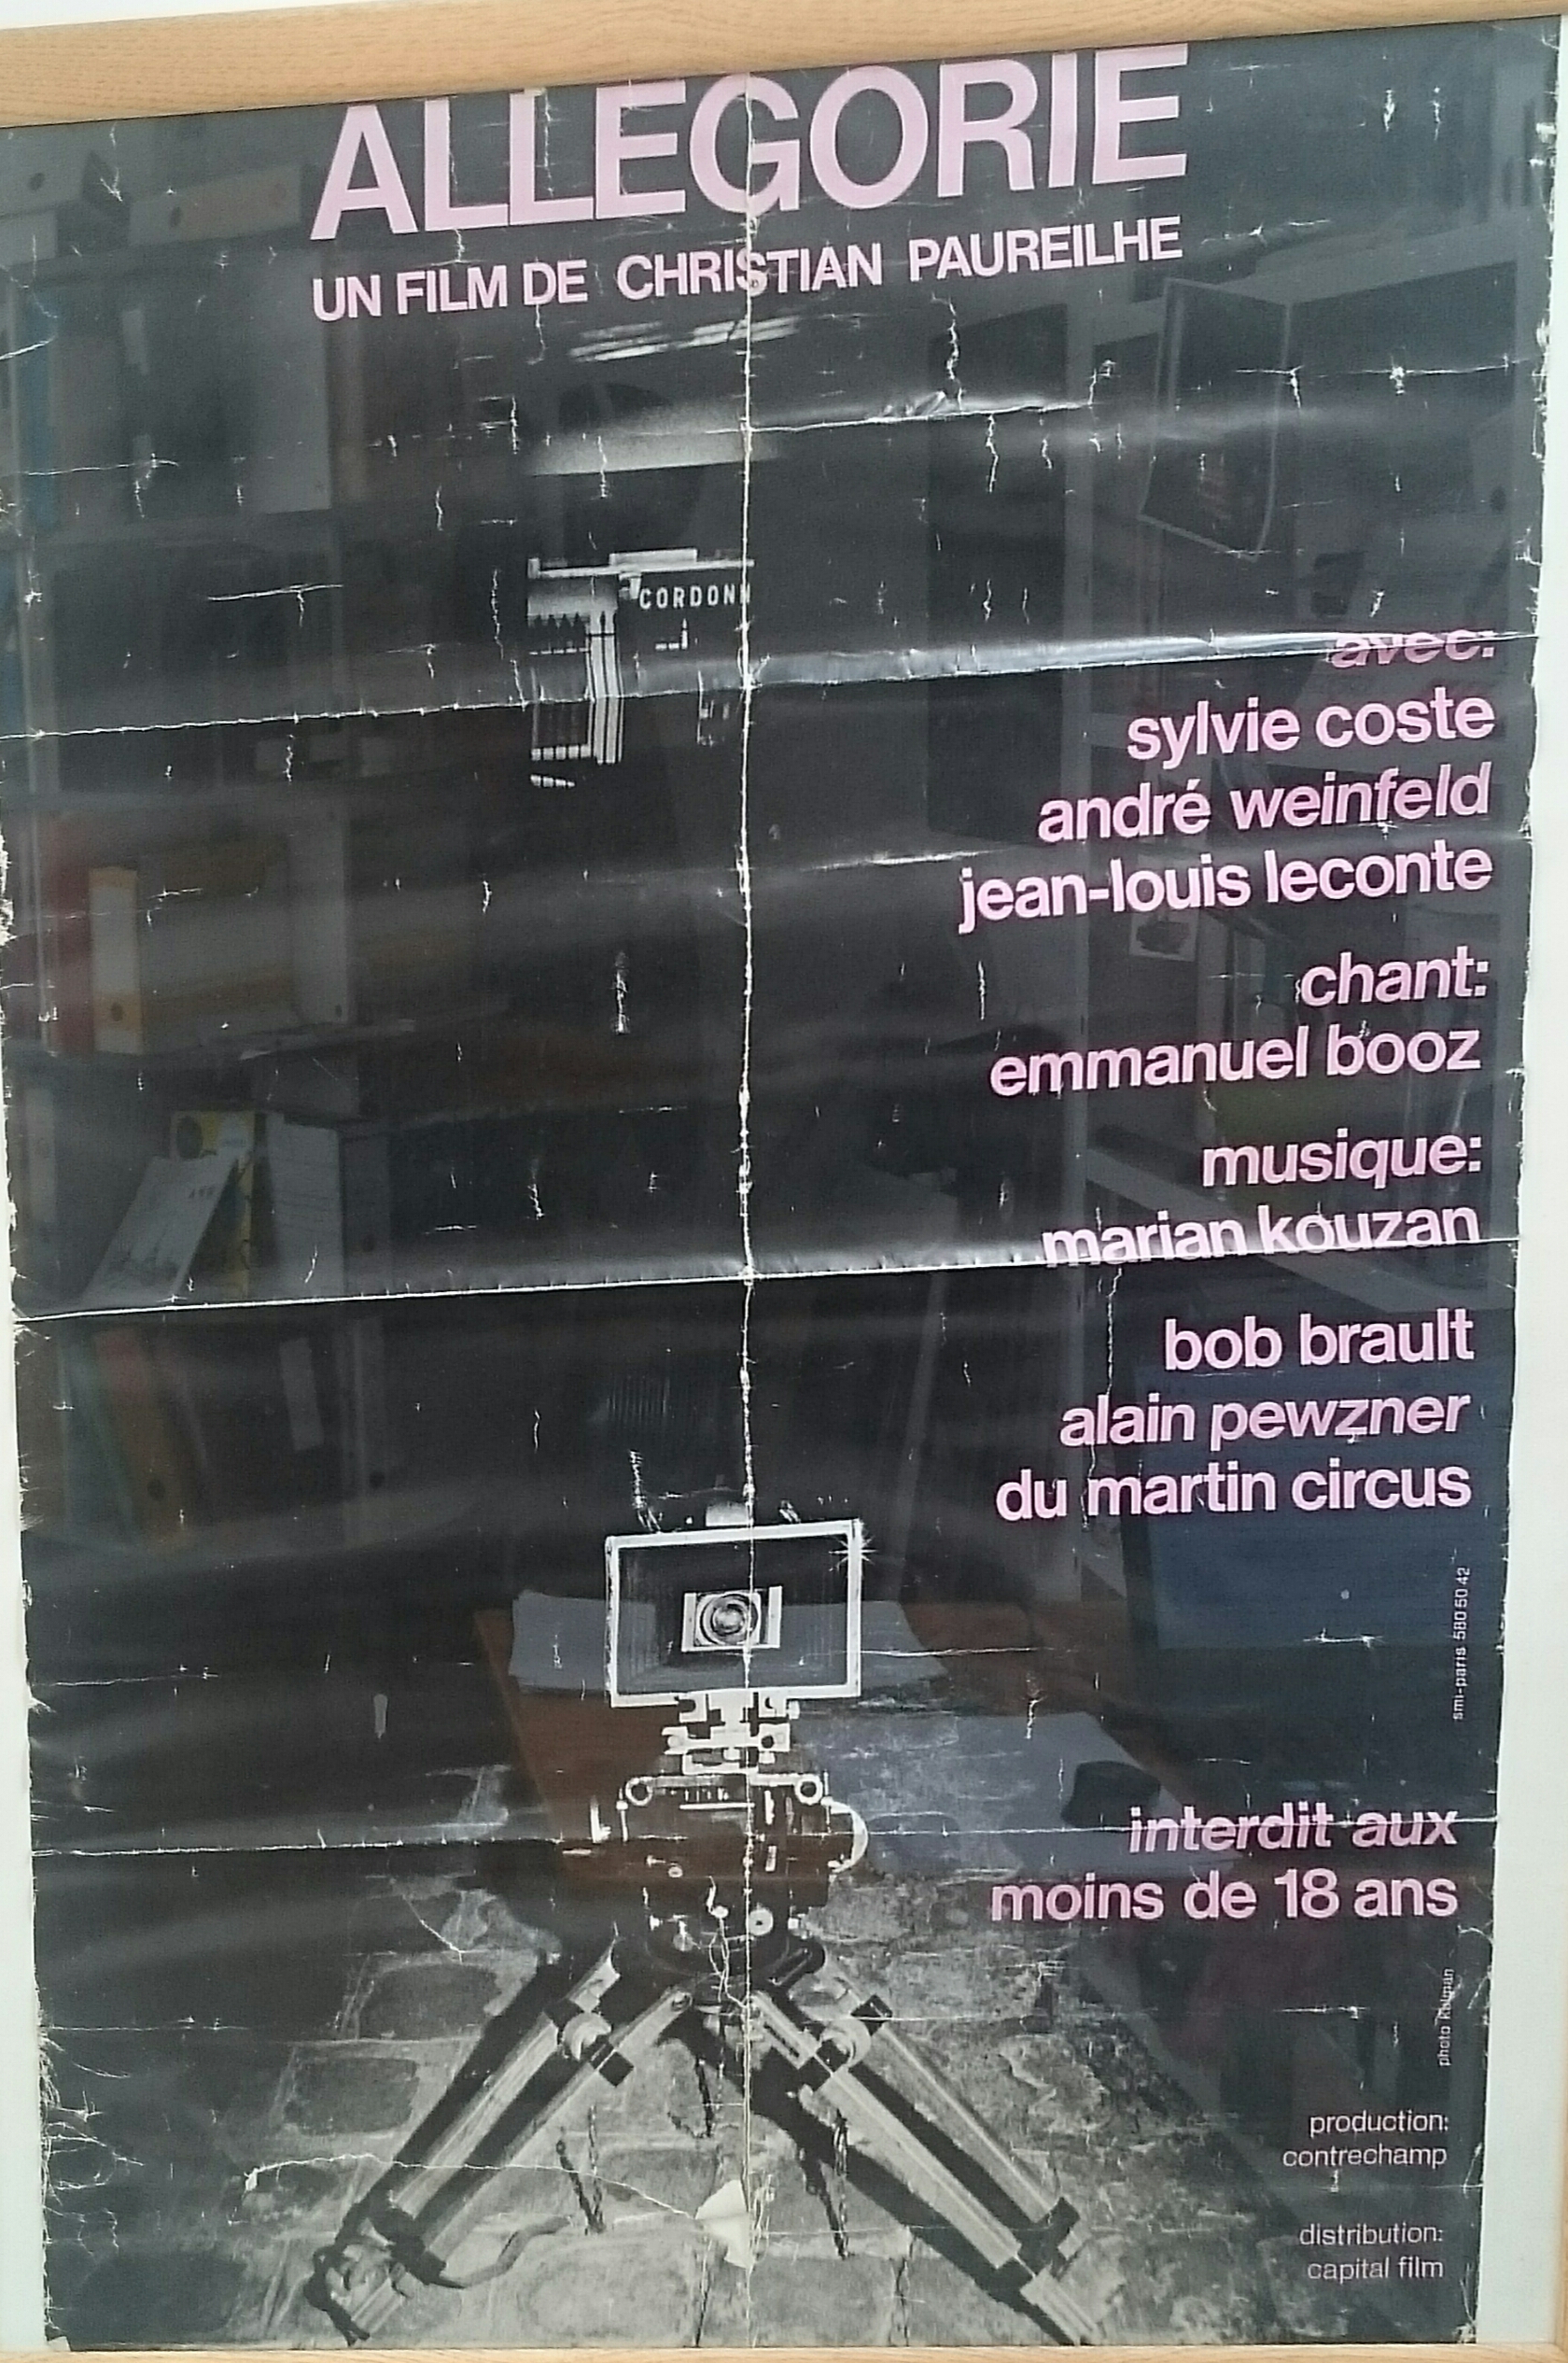 ALLEGORIE
UN FILM DE CHRISTIAN PAUREILHE
CORDONN
avec:
sylvie coste
andré weinfeld
jean-louis leconte
chant:
emmanuel booz
musique:
marian kouzan
bob brault
alain pewzner
du martin circus
smi-paris 580 50 42
interdit aux
moins de 18 ans
photo
production:
contrechamp
distribution:
capital film